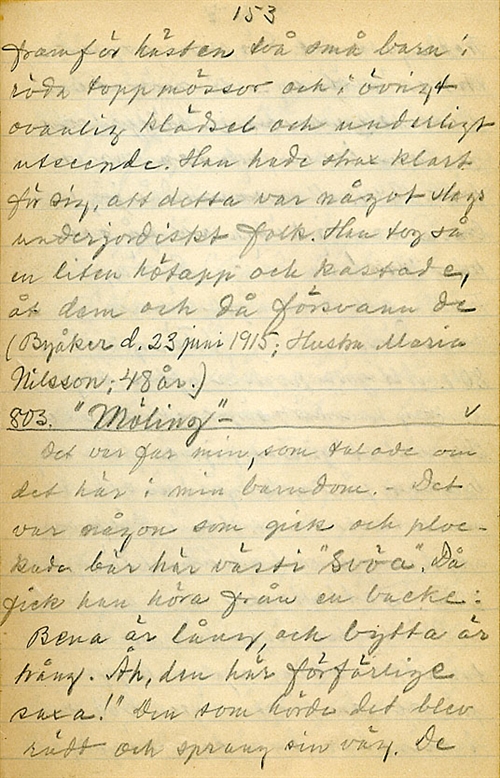 153
framför hästen två små barn i
röda toppmössor och i övrigt
ovanlig klädsel och underligt
utseende. Han hade strax klart
för sig, att detta var något slags
underjordiskt folk. Han tog så
en liten hötapp och kastade,
åt dem och då försvann de
(Byåker d. 23 juni 1915; Hustru Maria
Nilsson; 48 år.)
803. "Möling"-
Det var far min, som talade om
det här i min barndom. - Det
var någon som gick och ploc-
kade bär här västi "Svöa". Då
fick han höra från en backe:
Bena är lång, och bytta är
trång. Åh, den här förfärlige
saxa!" Den som hörde det blev
rädd och sprang sin väg. De